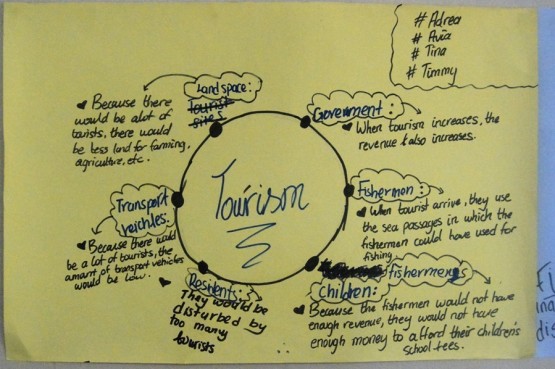 # Adrea
# Avia
# Tina
# Timmy
Tourism
Landspace:
tourist
sites
♥ Because there
would be alot of
tourists, there would
be less land for farming,
agriculture, etc.
Government:
♥ When tourism increases, the
revenue also increases.
Fishermen:
♥ When tourist arrive, they use
the sea passages in which the
fishermen could have used for
fishing.
fishermens
Children:
♥ Because the fishermen would not have
enough revenue, they would not have
enough money to afford their children's
school fees.
Residents:
♥ They would be
disturbed by
too many
tourists
Transport
veichles:
♥ Because there would
be a lot of tourists, the
amount of transport vehicles
would be low.